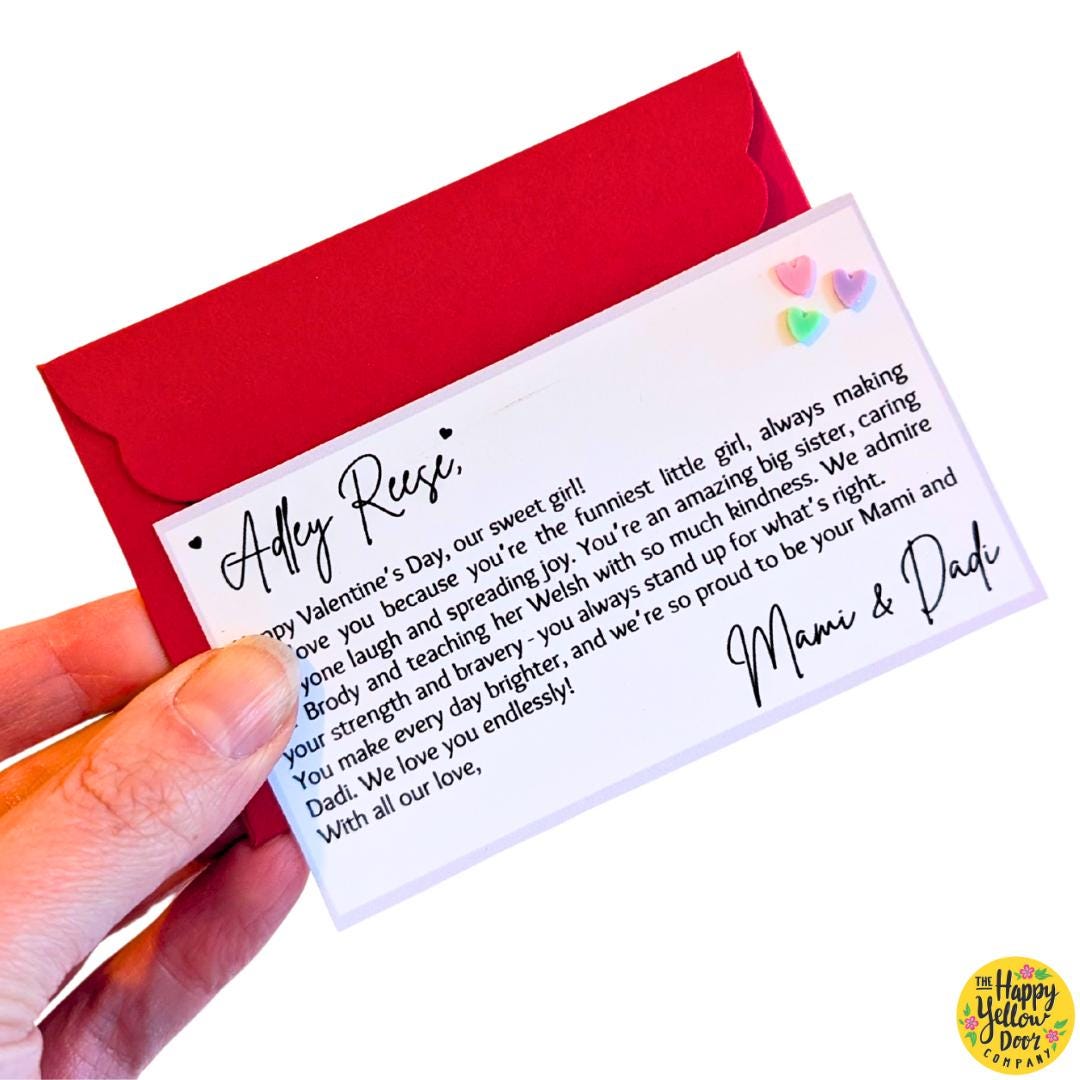 Adley Reese,
ppy Valentine's Day, our sweet girl!
ove you because you're the funniest little girl, always making
yone laugh and spreading joy. You're an amazing big sister, caring
Brody and teaching her Welsh with so much kindness. We admire
your strength and bravery - you always stand up for what's right.
You make every day brighter, and we're so proud to be your Mami and
Dadi. We love you endlessly!
With all our love,
Mami & Dadi
THE
Happy
Yellow
Door
COMPANY